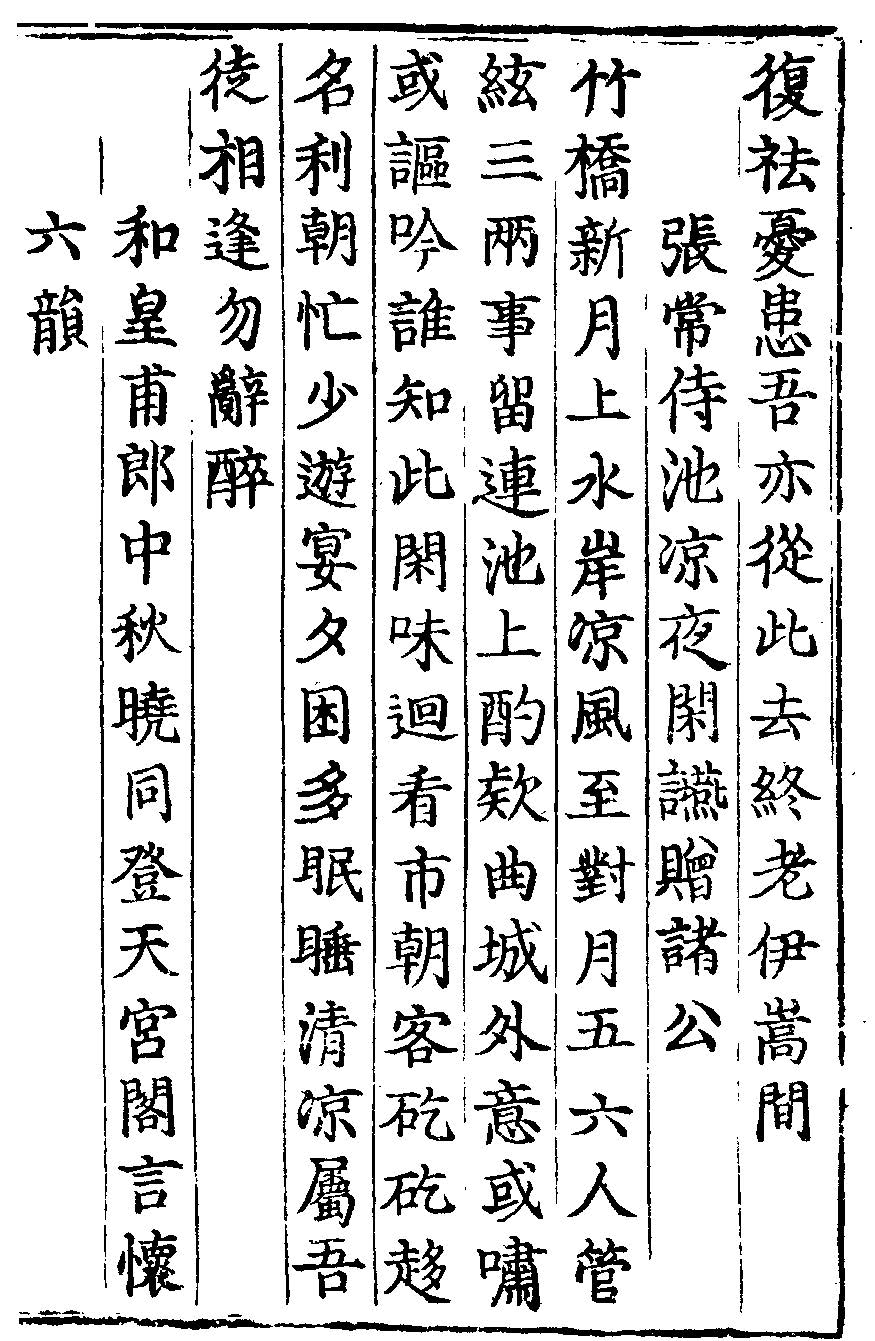 復祛憂患吾亦從此去終老伊嵩間
張常侍池凉夜閑讌贈諸公
竹橋新月上水岸凉風至對月五六人管
絃三兩事留連池上酌欵曲城外意或嘯
或謳吟誰知此閑味迴看市朝客矻矻趍
名利朝忙少遊宴夕困多眠睡清凉屬吾
徒相逢勿辭醉
和皇甫郎中秋曉同登天宮閣言懷
六韻